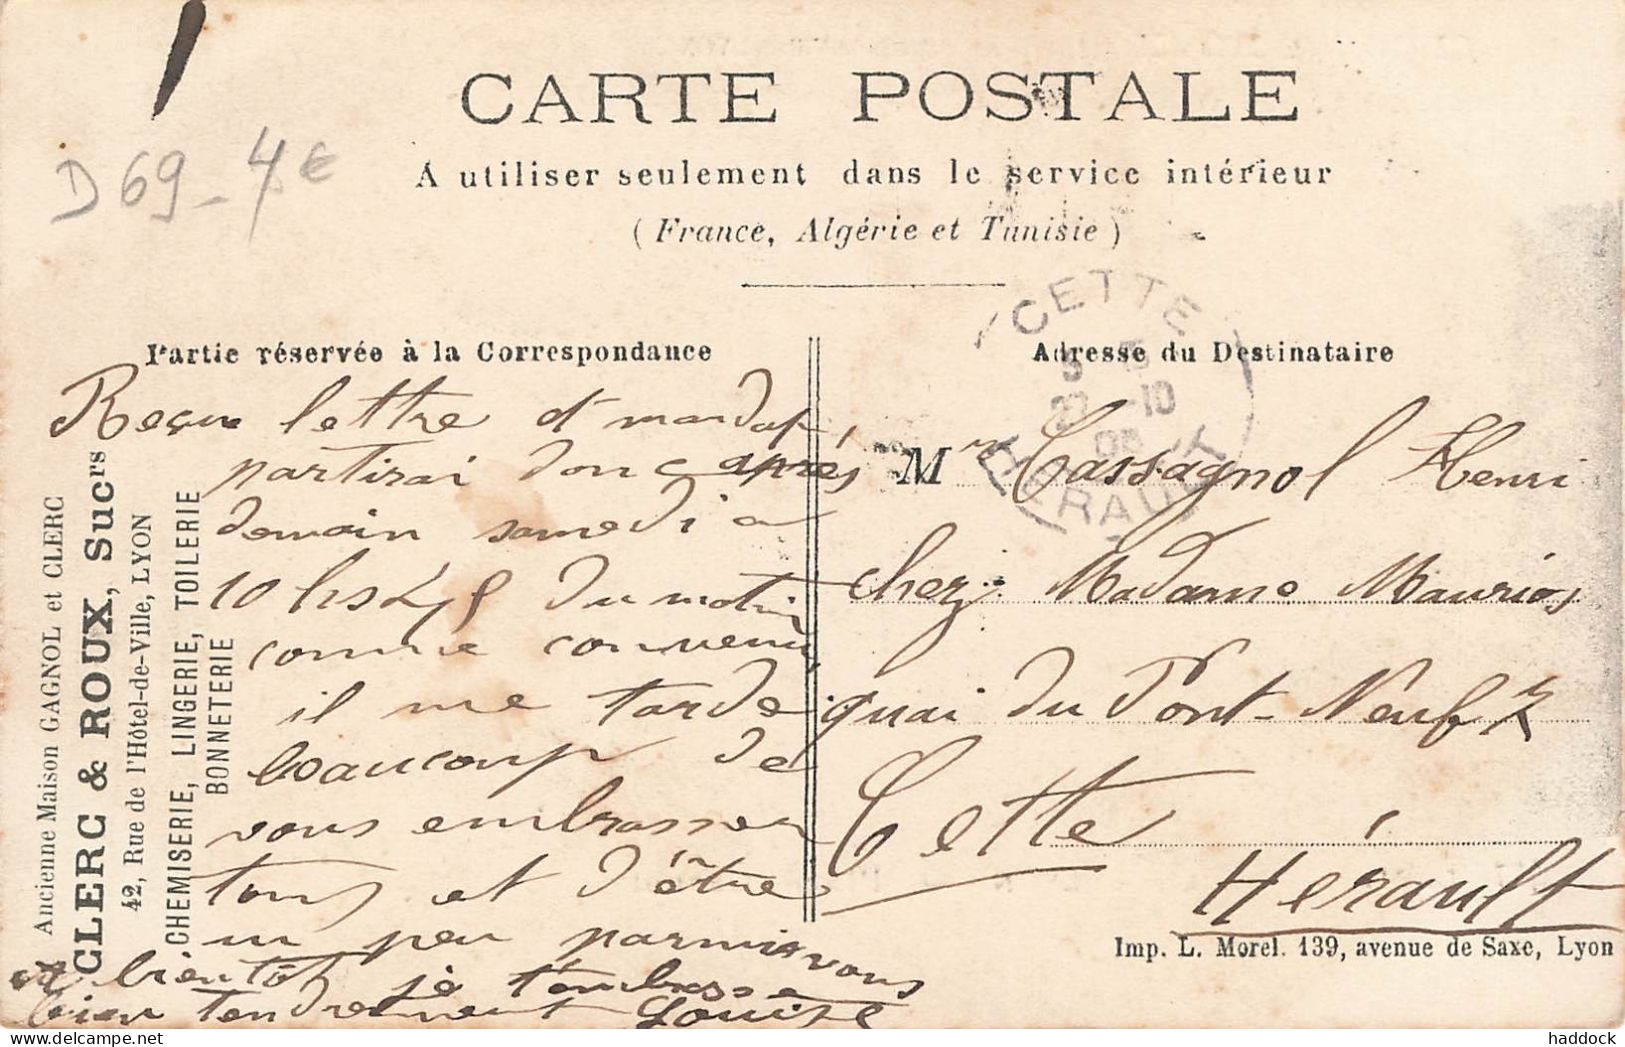 D 69 - 4€
CARTE POSTALE
A utiliser seulement dans le service intérieur
(France, Algérie et Tunisie)
CETTE
HÉRAULT
Partie réservée à la Correspondance
Reçu lettre et mandat,
partirai donc après
demain samedi a
10 hs du matin
comme convenu,
il me tarde
beaucoup de
vous embrasser
tous et d'être
un peu parmi vous
a bientôt je t'embrasse
bien tendrement Louise
Ancienne Maison GAGNOL et CLERC
CLERC & ROUX, Sucrs
42, Rue de l'Hôtel-de-Ville, LYON
CHEMISERIE, LINGERIE, TOILERIE
BONNETERIE
Adresse du Destinataire
Mr Cassagnol Henri
chez Madame Maurios
quai du Pont-Neuf
Cette
Hérault
Imp. L. Morel. 139, avenue de Saxe, Lyon
haddock